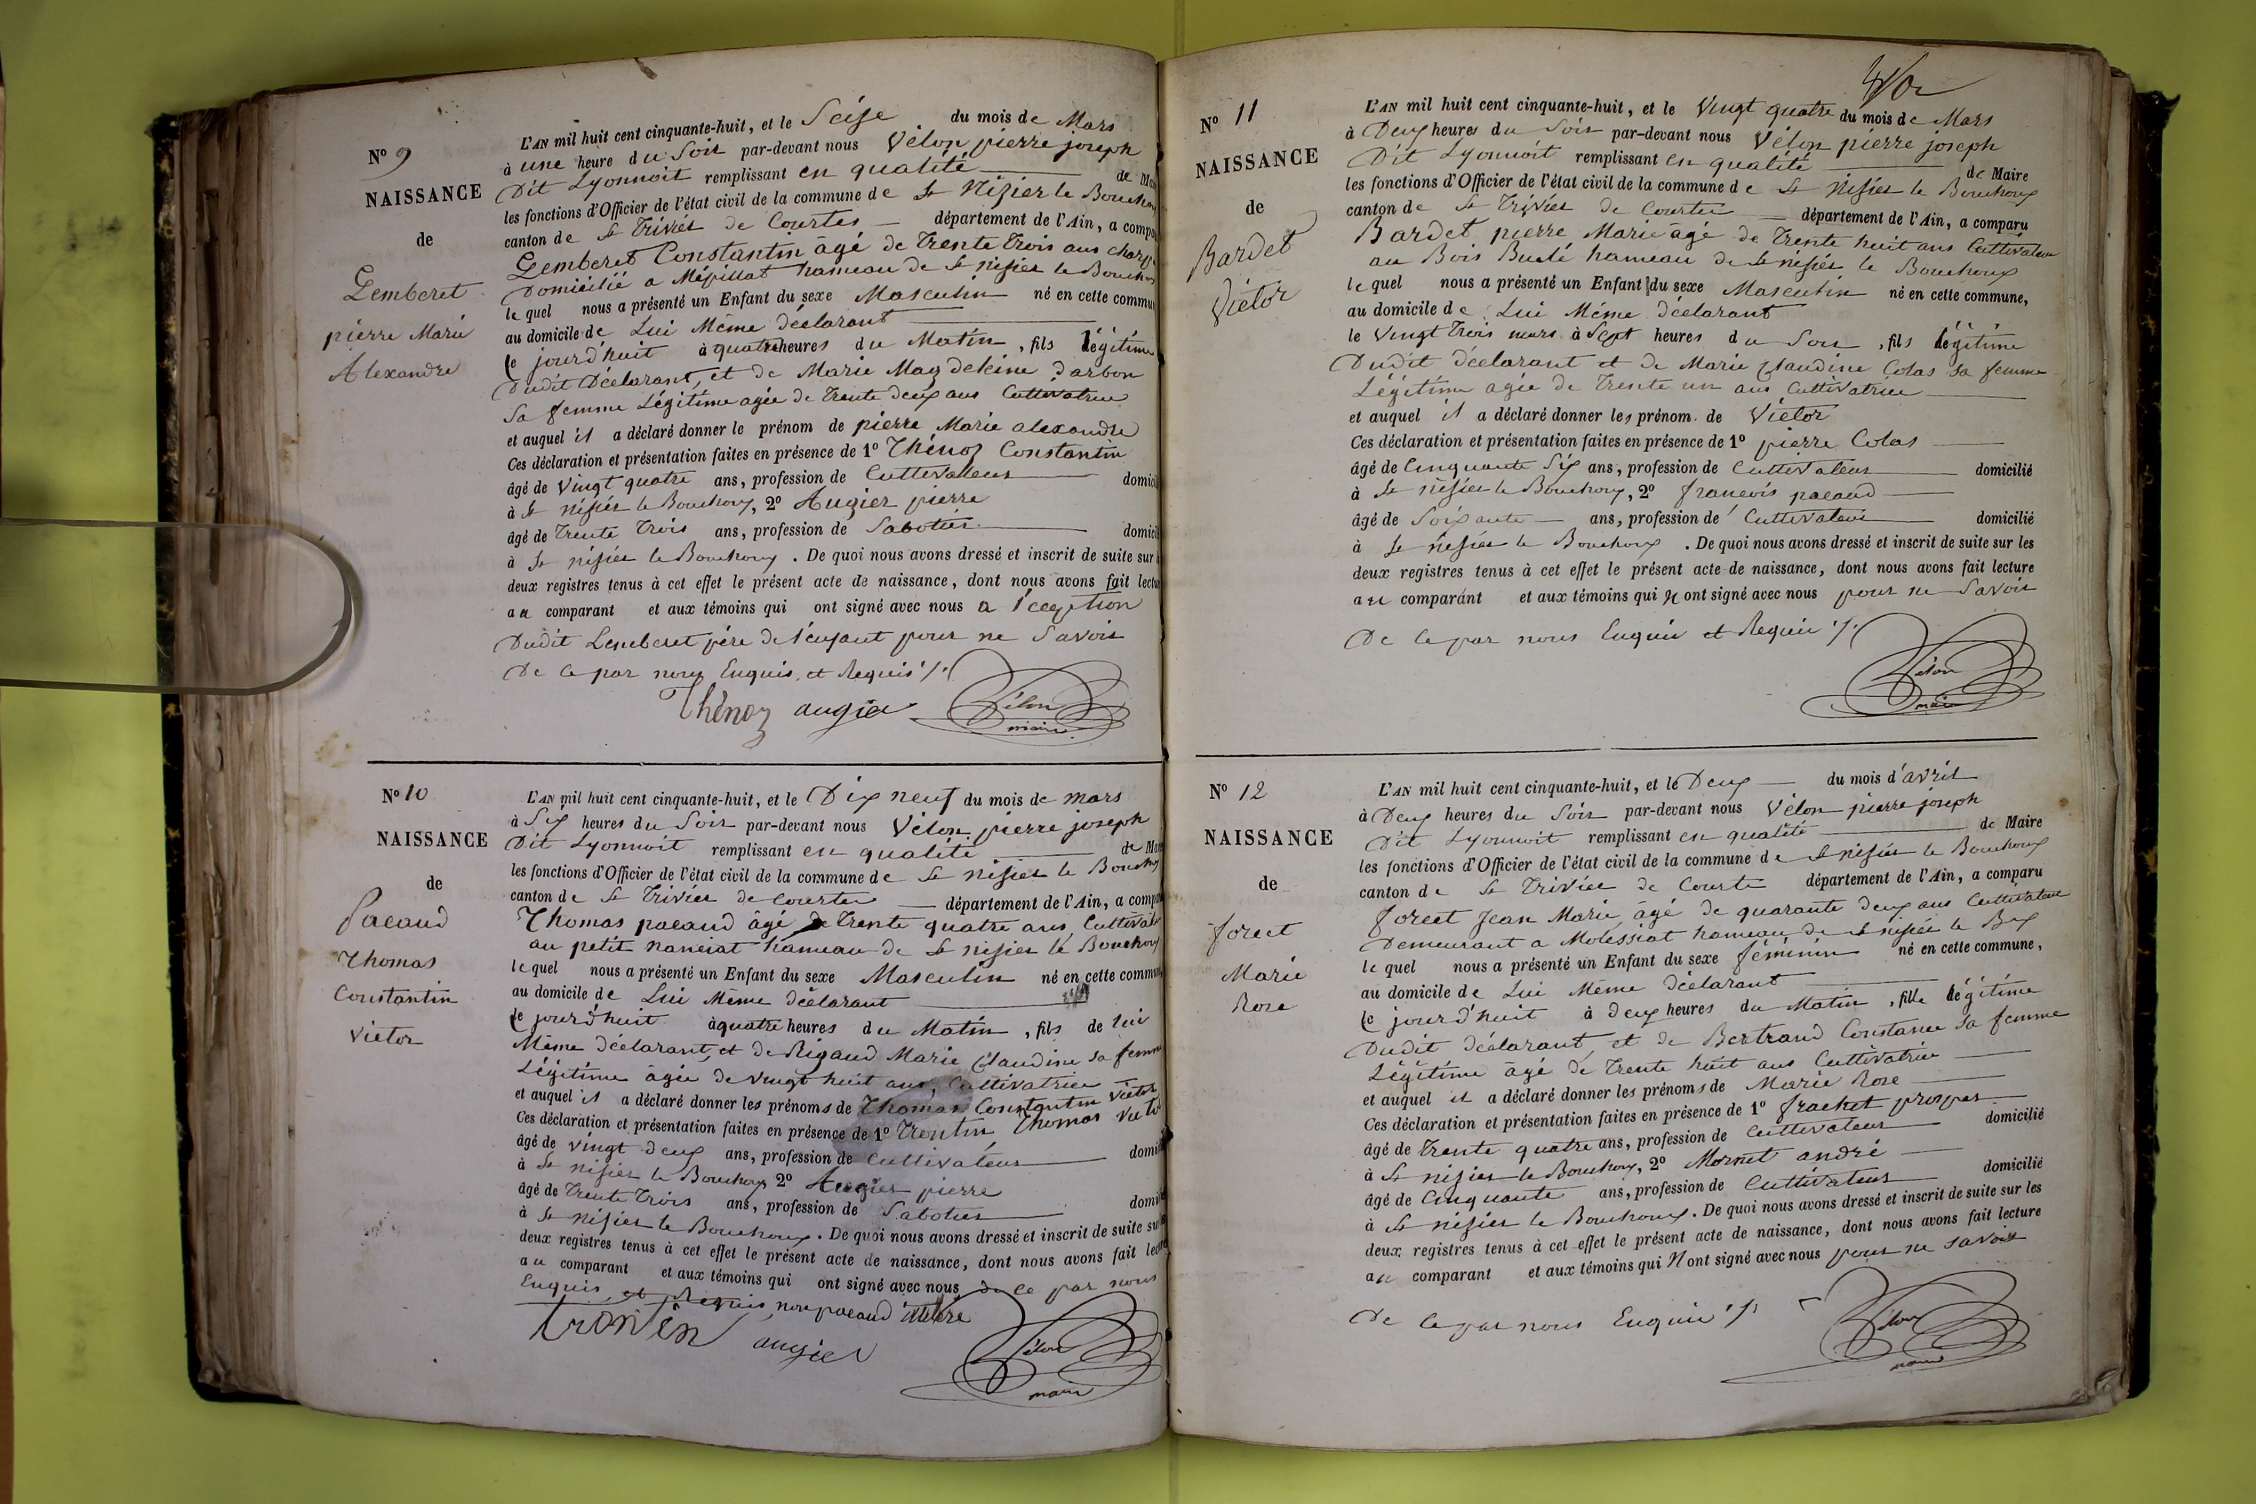 N° 9
NAISSANCE
de
Lemberet
pierre Marie
Alexandre
L'AN mil huit cent cinquante-huit, et le Seise du mois de Mars
à une heure du Soir par-devant nous Vélon pierre joseph
Dit Lyonnoit remplissant en qualité de
les fonctions d'Officier de l'état civil de la commune de St Nizier le
canton de St Trivier de Courtes département de l'Ain, a
Lemberet Constantin âgé de Trente Trois ans
Domicilié a Mépillat hameau de St nisier le
le quel nous a présenté un Enfant du sexe Masculin né en cette
au domicile de Lui Même déclarant
le jourd'huit à quatre heures du Matin, fils légitime
Dudit Déclarant, et de Marie Magdeleine Darbon
Sa femme Légitime agée de Trente deux ans Cultivatrice
et auquel il a déclaré donner le prénom de pierre Marie alexandre
Ces déclaration et présentation faites en présence de 1° Thénoz Constantin
âgé de Vingt quatre ans, profession de Cultivateur
à St nisier le Bouchoux, 2° Augier pierre
âgé de Trente Trois ans, profession de Sabotier
à St nisier le Bouchoux. De quoi nous avons dressé et inscrit de suite sur
deux registres tenus à cet effet le présent acte de naissance, dont nous avons fait
au comparant et aux témoins qui ont signé avec nous a l'éception
Dudit Lemberet père de l'enfant pour ne Savoir
De ce par nous Enquis et Requis ./.
Thénoz augier Vélon
maire
N° 10
NAISSANCE
de
Pacaud
Thomas
Constantin
Victor
L'AN mil huit cent cinquante-huit, et le Dix neuf du mois de mars
à Six heures du Soir par-devant nous Vélon pierre joseph
Dit Lyonnoit remplissant en qualité de
les fonctions d'Officier de l'état civil de la commune de St nisier le
canton de St Trivier de Courtes département de l'Ain, a
Thomas pacaud âgé de Trente quatre ans
au petit hameau de St nisier le Bouchoux
le quel nous a présenté un Enfant du sexe Masculin né en cette
au domicile de Lui Même déclarant
le jourd'huit à quatre heures du Matin, fils de lui
Même déclarant, et de Rigaud Marie Claudine sa femme
Légitime âgée de vingt huit ans, Cultivatrice
et auquel il a déclaré donner les prénoms de Thomas Constantin Victor
Ces déclaration et présentation faites en présence de 1° Trontin Thomas
âgé de vingt deux ans, profession de Cultivateur
à St nisier le Bouchoux 2° Augier pierre
âgé de Trente Trois ans, profession de Sabotier
à St nisier le Bouchoux. De quoi nous avons dressé et inscrit de suite
deux registres tenus à cet effet le présent acte de naissance, dont nous avons fait
au comparant et aux témoins qui ont signé avec nous de ce par nous
Enquis, et Requis, non pacaud
trontin augier Vélon
maire
N° 11
NAISSANCE
de
Bardet
Victor
L'AN mil huit cent cinquante-huit, et le Vingt quatre du mois de Mars
à Deux heures du Soir par-devant nous Vélon pierre joseph
Dit Lyonnoit remplissant en qualité de Maire
les fonctions d'Officier de l'état civil de la commune de St nisier le Bouchoux
canton de St Trivier de Courtes département de l'Ain, a comparu
Bardet pierre Marie agé de Trente huit ans Cultivateur
au Bois Buclé hameau de St nisier le Bouchoux
le quel nous a présenté un Enfant du sexe Masculin né en cette commune,
au domicile de Lui Même déclarant
le Vingt Trois mars à Sept heures du Soir, fils légitime
Dudit déclarant et de Marie Claudine Colas sa femme
Légitime agée de Trente un ans Cultivatrice
et auquel il a déclaré donner les prénom de Victor
Ces déclaration et présentation faites en présence de 1° pierre Colas
âgé de Cinquante Six ans, profession de Cultivateur domicilié
à St nisier le Bouchoux, 2° francois pacaud
âgé de Soixante ans, profession de Cultivateur domicilié
à St nisier le Bouchoux. De quoi nous avons dressé et inscrit de suite sur les
deux registres tenus à cet effet le présent acte de naissance, dont nous avons fait lecture
au comparant et aux témoins qui n ont signé avec nous pour ne Savoir
De ce par nous Enquis et Requis ./.
Vélon
maire
N° 12
NAISSANCE
de
foret
Marie
Rose
L'AN mil huit cent cinquante-huit, et le Deux du mois d'avril
à Deux heures du Soir par-devant nous Vélon pierre joseph
Dit Lyonnoit remplissant en qualité de Maire
les fonctions d'Officier de l'état civil de la commune de St nisier le Bouchoux
canton de St Trivier de Courte département de l'Ain, a comparu
foret Jean Marie, âgé de quarante deux ans Cultivateur
Demeurant a Molessiat hameau de St nisier le Bx
le quel nous a présenté un Enfant du sexe féminin né en cette commune,
au domicile de Lui Même déclarant
le jourd'huit à deux heures du Matin, fille légitime
Dudit déclarant et de Bertrand Constance sa femme
Légitime âgé de Trente huit ans Cultivatrice
et auquel il a déclaré donner les prénoms de Marie Rose
Ces déclaration et présentation faites en présence de 1° frachet prosper
âgé de Trente quatre ans, profession de Cultivateur domicilié
à St nisier le Bouchoux, 2° Mornet andré
âgé de Cinquante ans, profession de Cultivateur domicilié
à St nisier le Bouchoux. De quoi nous avons dressé et inscrit de suite sur les
deux registres tenus à cet effet le présent acte de naissance, dont nous avons fait lecture
au comparant et aux témoins qui n ont signé avec nous pour ne savoir
De ce par nous Enquis ./.
Vélon
maire